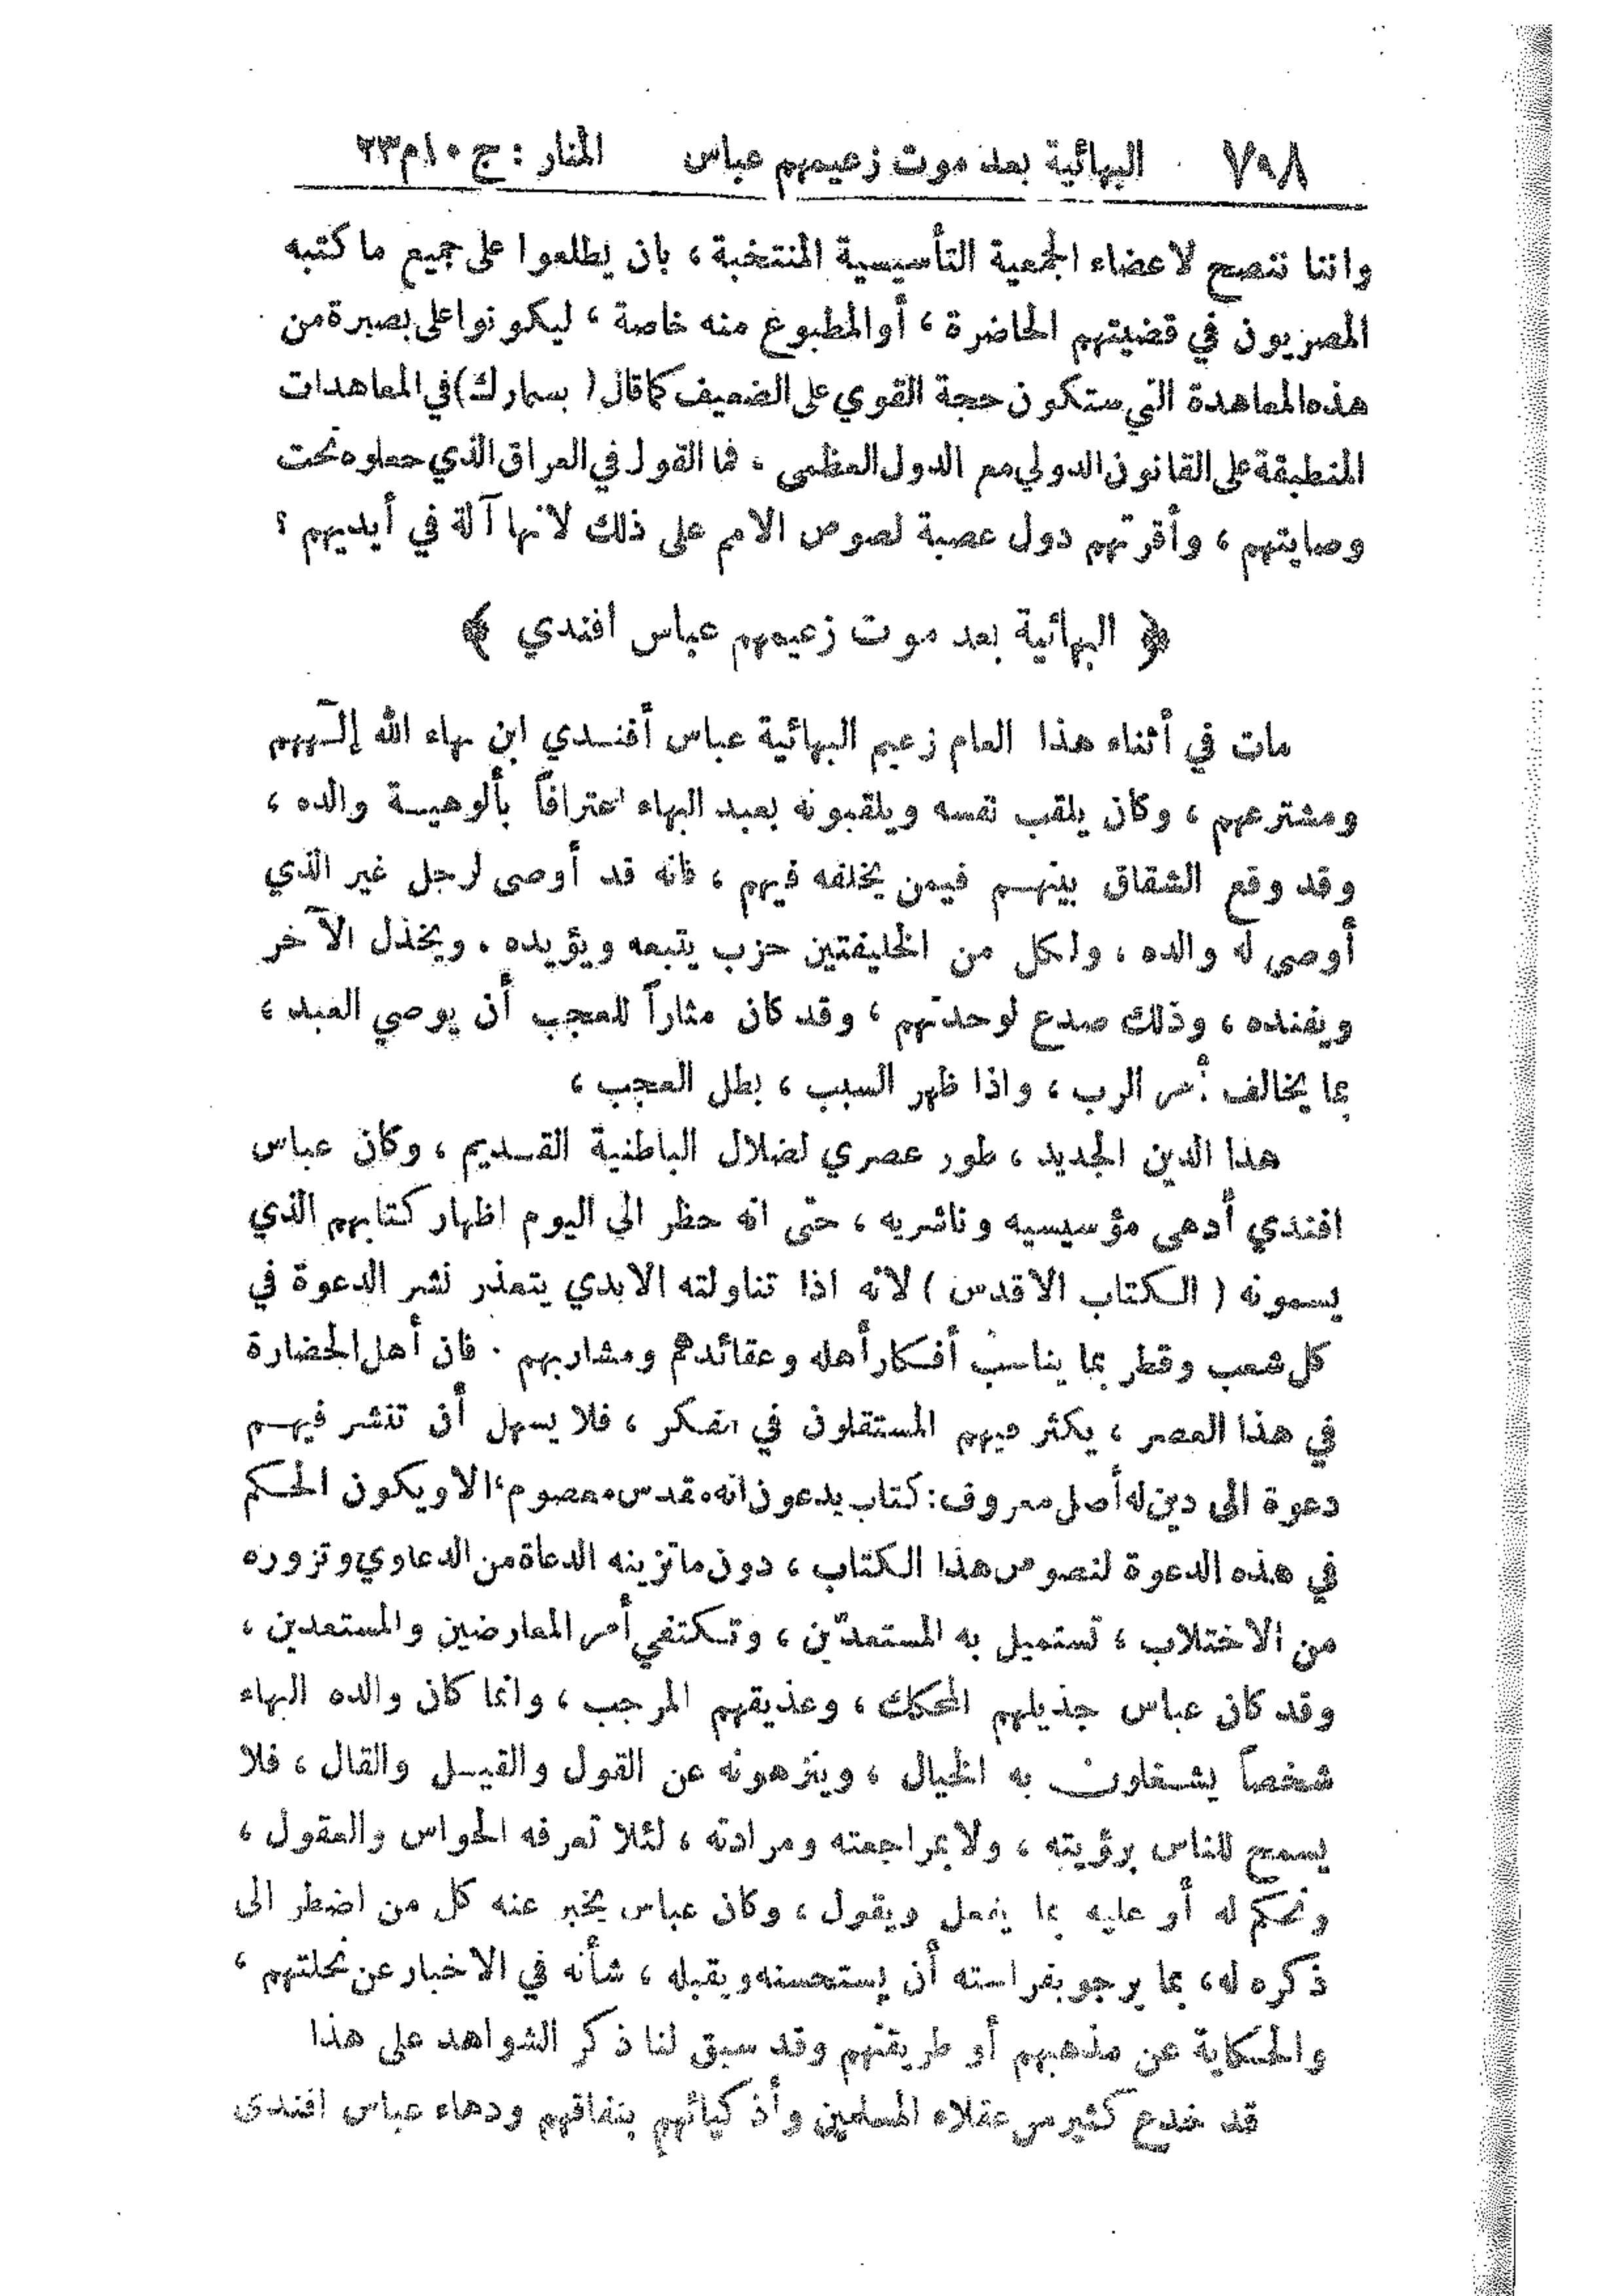 ٧٩٨ البهائية بعد موت زعيمهم عباس المنار : ج ١٠م٢٣
واننا ننصح لاعضاء الجمعية التأسيسية المنتخبة ، بان يطلعوا على جميع ما كتبه
المصريون في قضيتهم الحاضرة ، أو المطبوع منه خاصة ، ليكونوا على بصيرة من
هذه المعاهدة التي ستكون حجة القوي على الضعيف كما قال ( بسمارك ) في المعاهدات
المنطبقة على القانون الدولي مع الدول العظمى ، فما القول في العراق الذي جعلوه تحت
وصايتهم ، وأقرتهم دول عصبة لصوص الامم على ذلك لانها آلة في أيديهم ؟
﴿ البهائية بعد موت زعيمهم عباس افندي ﴾
مات في أثناء هذا العام زعيم البهائية عباس أفندي ابن بهاء الله إلٓههم
ومشترعهم ، وكان يلقب نفسه ويلقبونه بعبد البهاء اعترافاً بألوهية والده ،
وقد وقع الشقاق بينهم فيمن يخلفه فيهم ، فانه قد أوصى لرجل غير الذي
أوصى له والده ، ولكل من الخليفتين حزب يتبعه ويؤيده . ويخذل الآخر
ويفنده ، وذلك صدع لوحدتهم ، وقد كان مثاراً للعجب أن يوصي العبد ،
بما يخالف أمر الرب ، واذا ظهر السبب ، بطل العجب ،
هذا الدين الجديد ، طور عصري لضلال الباطنية القديم ، وكان عباس
افندي أدهى مؤسيسيه وناشريه ، حتى انه حظر الى اليوم اظهار كتابهم الذي
يسمونه ( الكتاب الاقدس ) لانه اذا تناولته الايدي يتعذر نشر الدعوة في
كل شعب وقطر بما يناسب أفكار أهله وعقائدهم ومشاربهم . فان أهل الحضارة
في هذا العصر ، يكثر فيهم المستقلون في الفكر ، فلا يسهل أن تنشر فيهم
دعوة الى دين له أصل معروف : كتاب يدعون انه مقدس معصوم ، الا ويكون الحكم
في هذه الدعوة لنصوص هذا الكتاب ، دون ما تزينه الدعاة من الدعاوي وتزوره
من الاختلاب ، تستميل به المستعدّين ، وتكتفي أمر المعارضين والمستعدين ،
وقد كان عباس جذيلهم المحكك ، وعذيقهم المرجب ، وانما كان والده البهاء
شخصاً يشغلون به الخيال ، وينزهونه عن القول والقيل والقال ، فلا
يسمح للناس برؤيته ، ولا بمراجعته ومرادته ، لئلا تعرفه الحواس والعقول ،
وتحكم له أو عليه بما يفعل ويقول ، وكان عباس يخبر عنه كل من اضطر الى
ذكره له ، بما يرجو بفراسته أن يستحسنه ويقبله ، شأنه في الاخبار عن نحلتهم ،
والحكاية عن مذهبهم أو طريقتهم وقد سبق لنا ذكر الشواهد على هذا
قد خدع كثير من عقلاء المسلمين وأذكيائهم بنفاقهم ودهاء عباس افندى